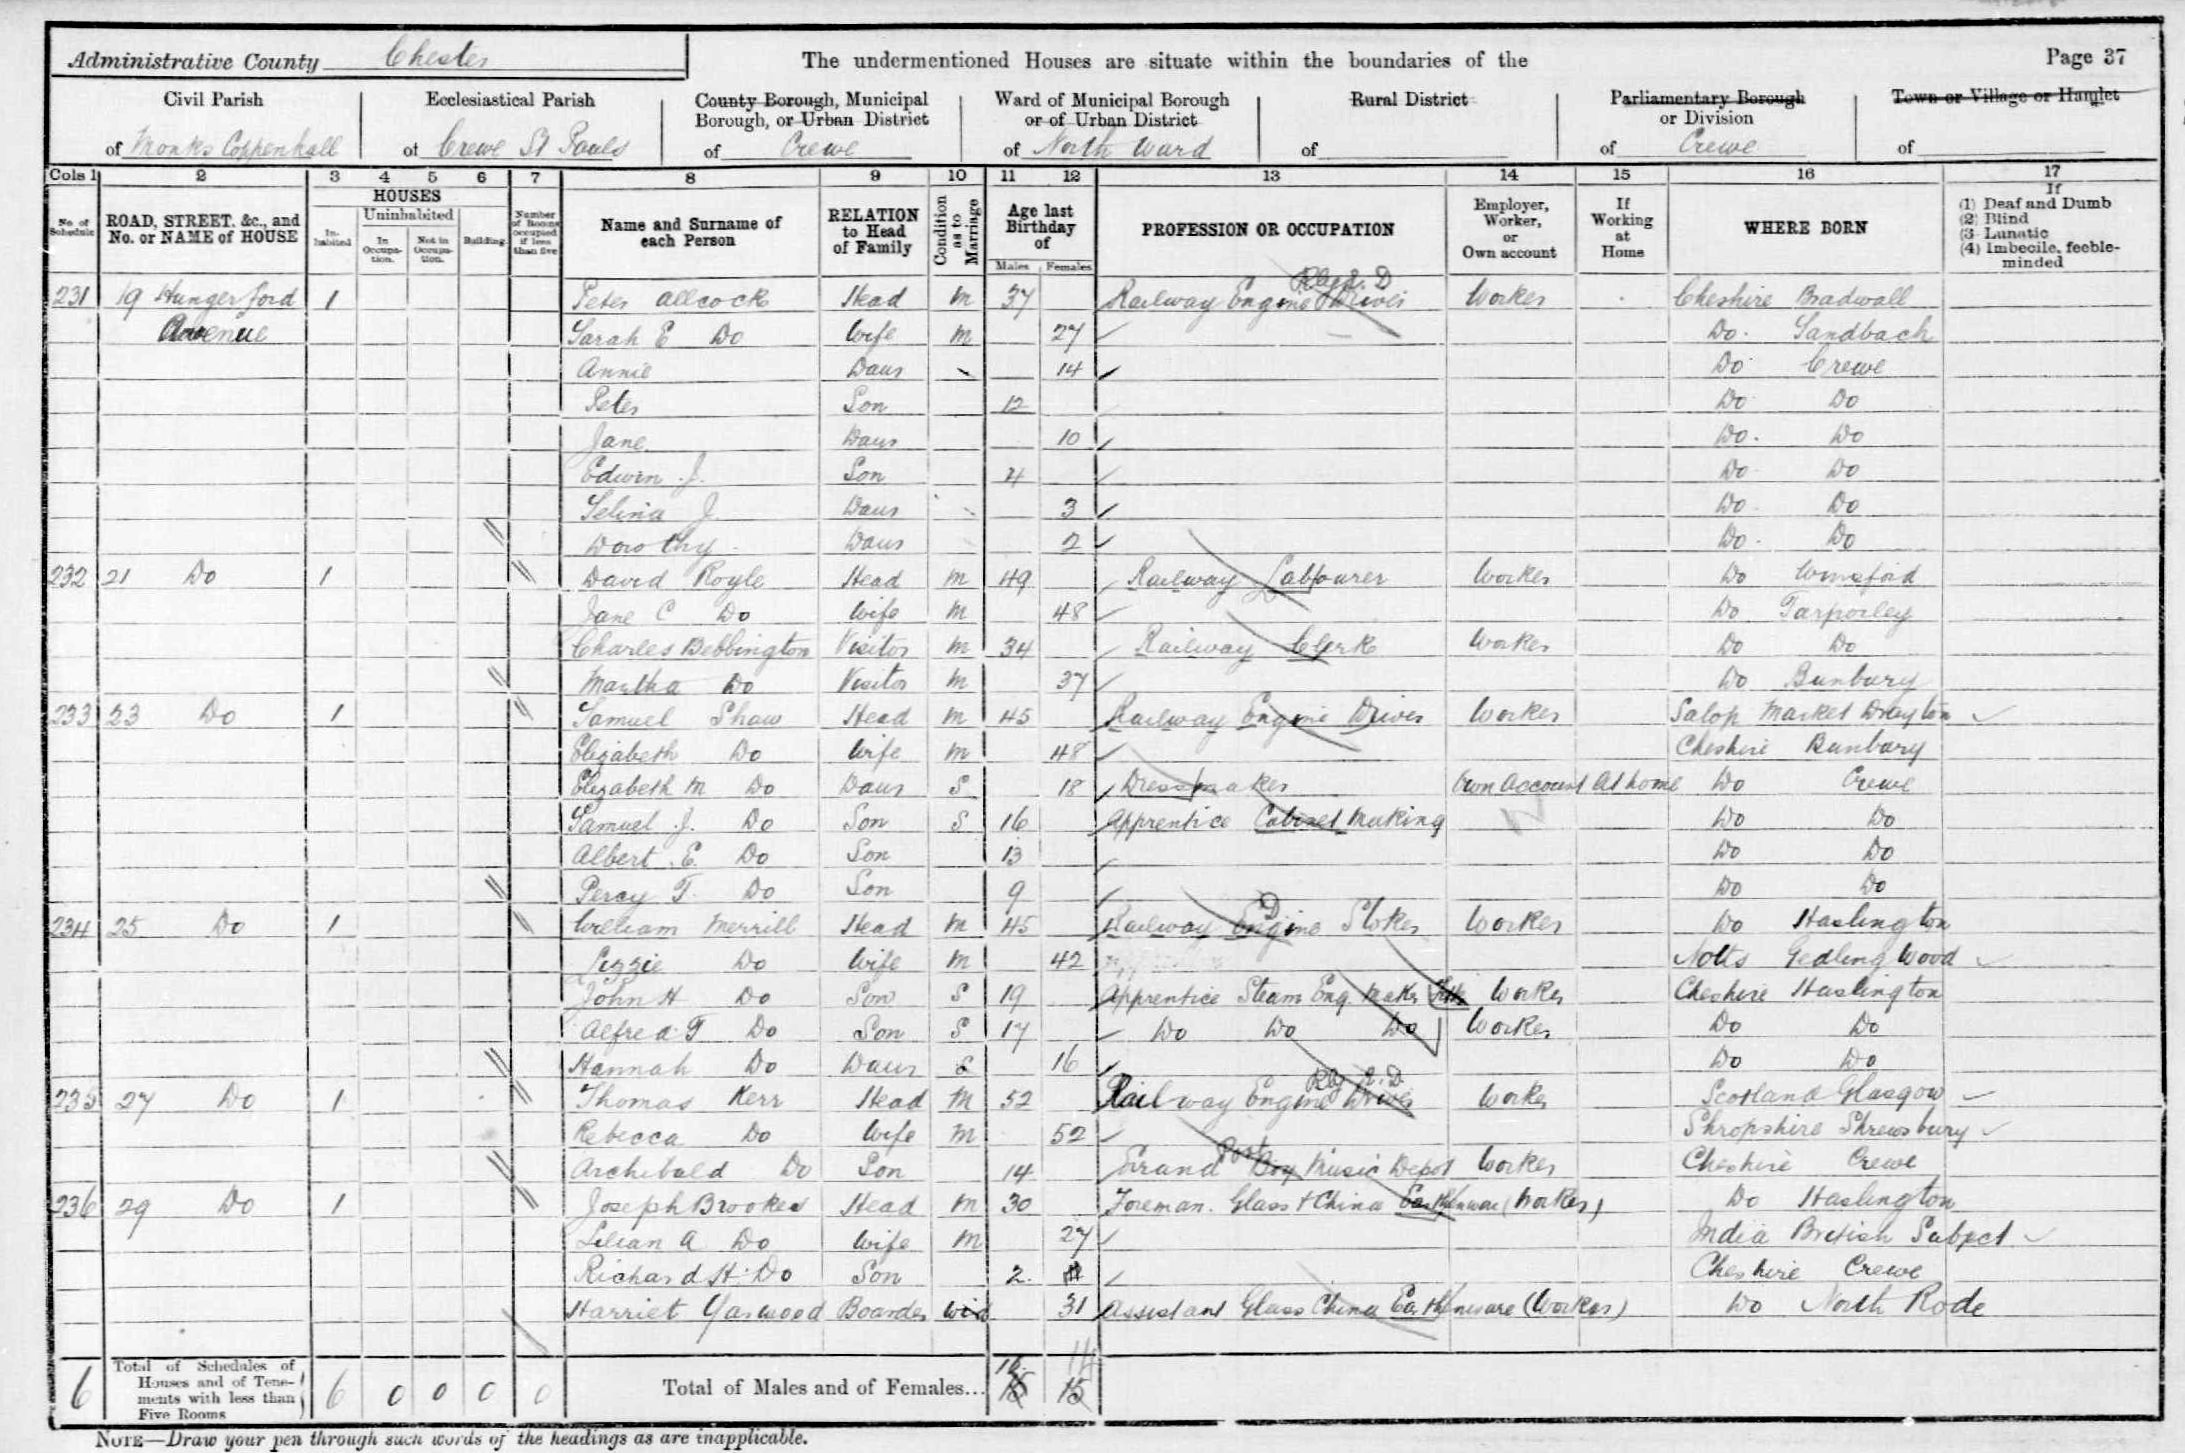 Administrative County Chester
The undermentioned Houses are situate within the boundaries of the
Page 37
Civil Parish of Monks Coppenhall
Ecclesiastical Parish of Crewe St Pauls
County Borough, Municipal Borough, or Urban District of Crewe
Ward of Municipal Borough or of Urban District of North Ward
Rural District of
Parliamentary Borough or Division of Crewe
Town or Village or Hamlet of
Cols 1 2 3 4 5 6 7 8 9 10 11 12 13 14 15 16 17
No. of Schedule
ROAD, STREET, &c., and No. or NAME of HOUSE
HOUSES
In-habited
Uninhabited
In Occupa-tion.
Not in Occupa-tion.
Building
Number of Rooms occupied if less than five
Name and Surname of each Person
RELATION to Head of Family
Condition as to Marriage
Age last Birthday of
Males Females
PROFESSION OR OCCUPATION
Employer, Worker, or Own account
If Working at Home
WHERE BORN
If
(1) Deaf and Dumb
(2) Blind
(3) Lunatic
(4) Imbecile, feeble-minded
231 19 Hungerford 1 Peter Allcock Head M 37 Railway Engine Driver Worker Cheshire Bradwall
Avenue Sarah E Do Wife M 27 Do. Sandbach
Annie Daur 14 Do Crewe
Peter Son 12 Do Do
Jane Daur 10 Do. Do
Edwin J. Son 4 Do Do
Selina J. Daur 3 Do Do
Dorothy Daur 2 Do. Do
232 21 Do 1 David Royle Head M 49 Railway Labourer Worker Do Winsford
Jane C Do Wife M 48 Do Tarporley
Charles Bebbington Visitor M 34 Railway Clerk Worker Do Do
Martha Do Visitor M 37 Do Bunbury
233 23 Do 1 Samuel Shaw Head M 45 Railway Engine Driver Worker Salop Market Drayton
Elizabeth Do Wife M 48 Cheshire Bunbury
Elizabeth M Do Daur S 18 Dressmaker Own Account At home Do Crewe
Samuel J. Do Son S 16 Apprentice Cabinet Making Do Do
Albert E. Do Son 13 Do Do
Percy T. Do Son 9 Do Do
234 25 Do 1 William Merrill Head M 45 Railway Engine Stoker Worker Do Haslington
Lizzie Do Wife M 42 Notts Gedling Wood
John H Do Son S 19 Apprentice Steam Eng. Maker Worker Cheshire Haslington
Alfred T Do Son S 17 Do Do Do Worker Do Do
Hannah Do Daur S 16 Do Do
235 27 Do 1 Thomas Kerr Head M 52 Railway Engine Driver Worker Scotland Glasgow
Rebecca Do Wife M 52 Shropshire Shrewsbury
Archibald Do Son 14 Errand Boy Music Depot Worker Cheshire Crewe
236 29 Do 1 Joseph Brookes Head M 30 Foreman. Glass + China Earthenware (Worker) Do Haslington
Lilian A Do Wife M 27 India British Subject
Richard H. Do Son 2. Cheshire Crewe
Harriet Yarwood Boarder Wid 31 Assistant Glass China Earthenware (Worker) Do North Rode
6 Total of Schedules of Houses and of Tene-ments with less than Five Rooms 6 0 0 0 0 Total of Males and of Females... 16 15 14 15
NOTE—Draw your pen through such words of the headings as are inapplicable.